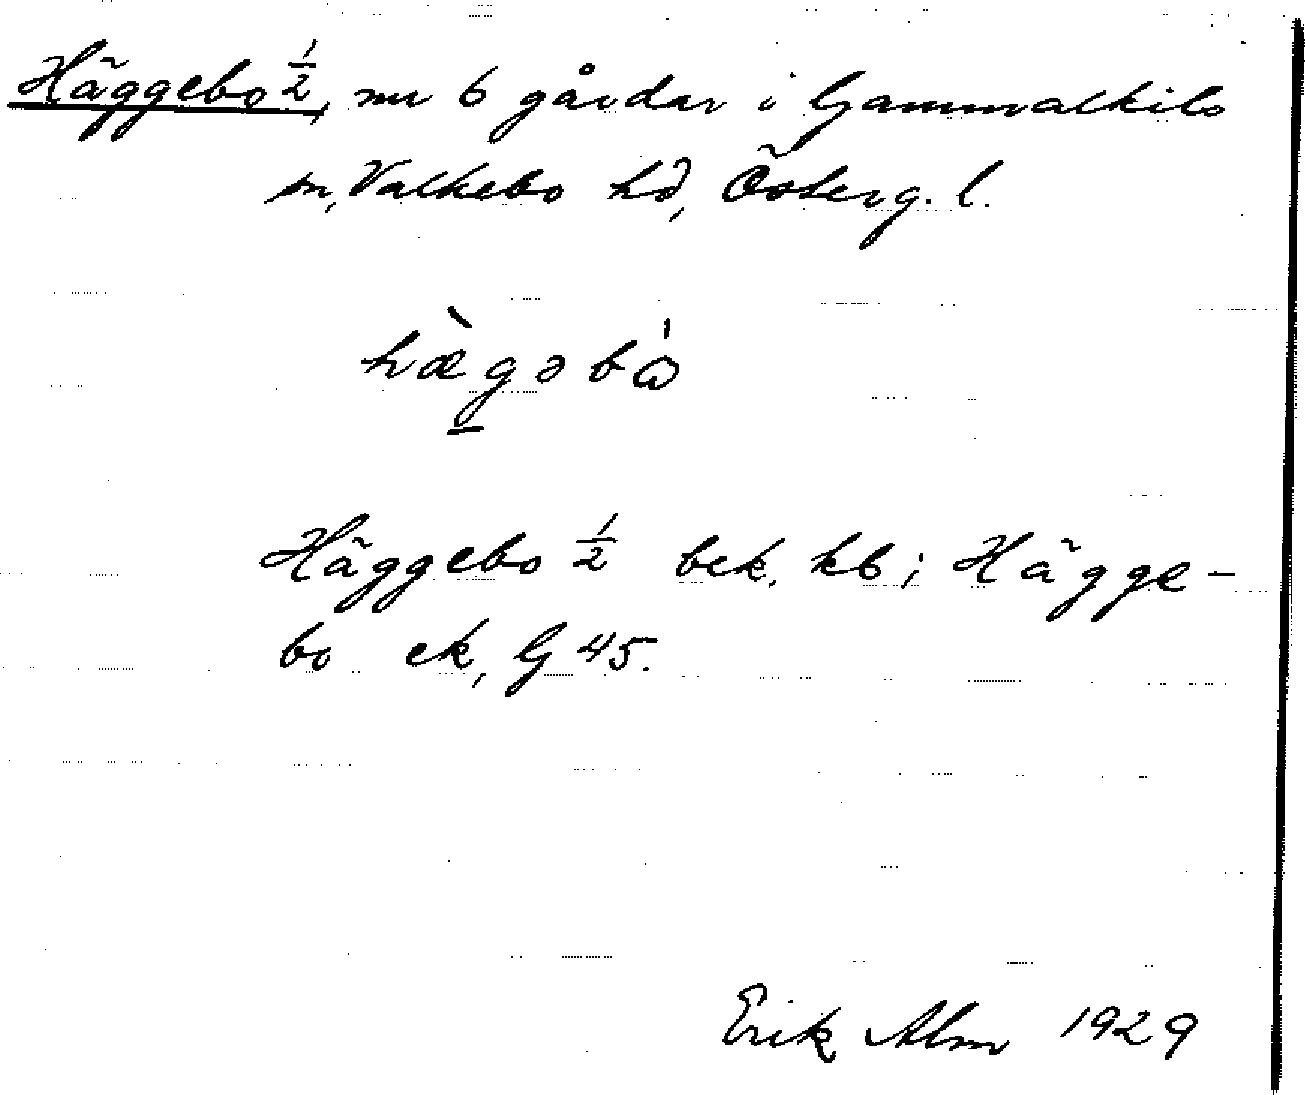 Häggebo ½, nu 6 gårdar i Gammalkils
sn, Valkebo hd, Österg. l.
hæ̀gəbǻ
Häggebo ½ bek. kb; Hägge-
bo ek, G 45.
Erik Alm 1929